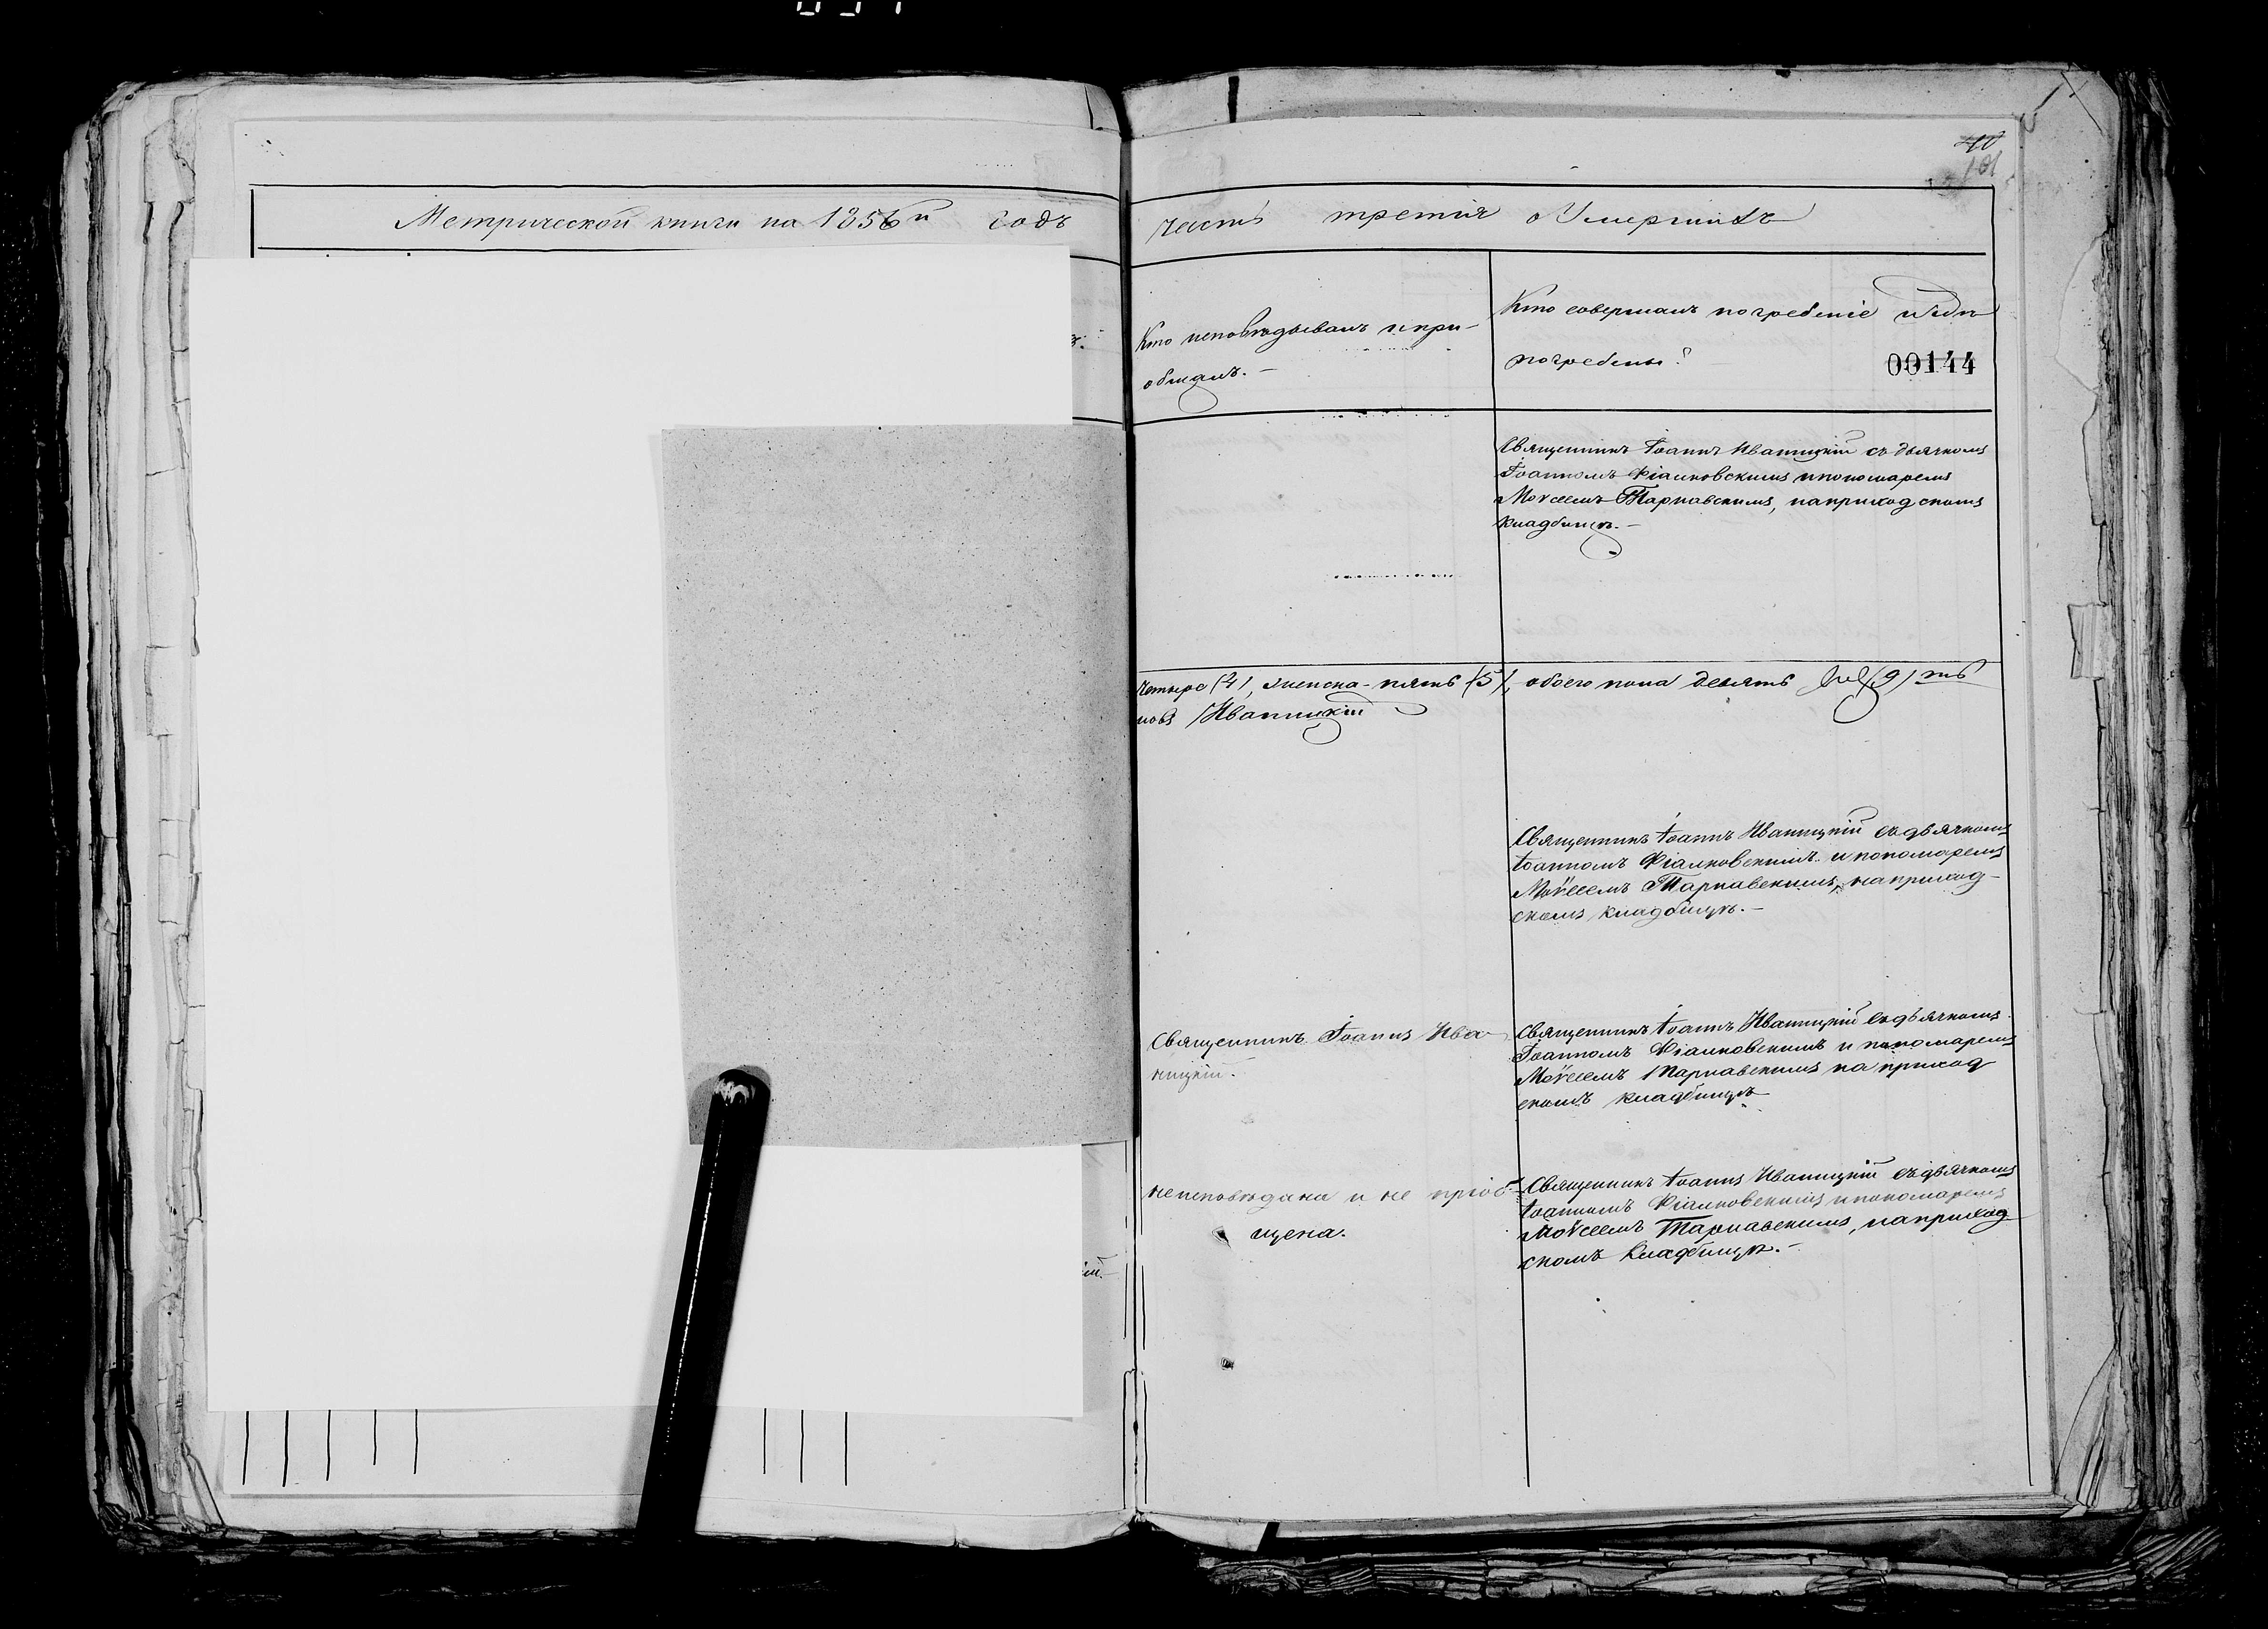 40
101
Метрической книги на 1856й годъ
часть третія о Умершихъ
Кто исповѣдывалъ и прі-
общалъ.-
Кто совершалъ погребеніе и гдѣ
погребены?
00144
Священникъ Іоаннъ Иваницкій съ дьячкомъ
Іоанномъ Фіалковскимъ и пономаремъ
Моѵсеемъ Тарнавскимъ, на приходскомъ
кладбищѣ.-
четыре (4), женска - пять (5), обоего пола девять (9)
Иваницкій
Священникъ Іоаннъ Иваницкій съ дьячкомъ
Іоанномъ Фіалковскимъ и пономаремъ
Моѵсеемъ Тарнавскимъ, на приход-
скомъ кладбищѣ.-
Священникъ Іоаннъ Ива-
ницкій.
Священникъ Іоаннъ Иваницкій съ дьячкомъ
Іоанномъ Фіалковскимъ и пономаремъ
Моѵсеемъ Тарнавскимъ на приход
скомъ кладбищѣ
не исповѣдана и не пріоб-
щена.
Священникъ Іоаннъ Иваницкій съ дьячкомъ
Іоанномъ Фіалковскимъ и пономаремъ
Моѵсеемъ Тарнавскимъ, на приход
скомъ кладбищѣ.-